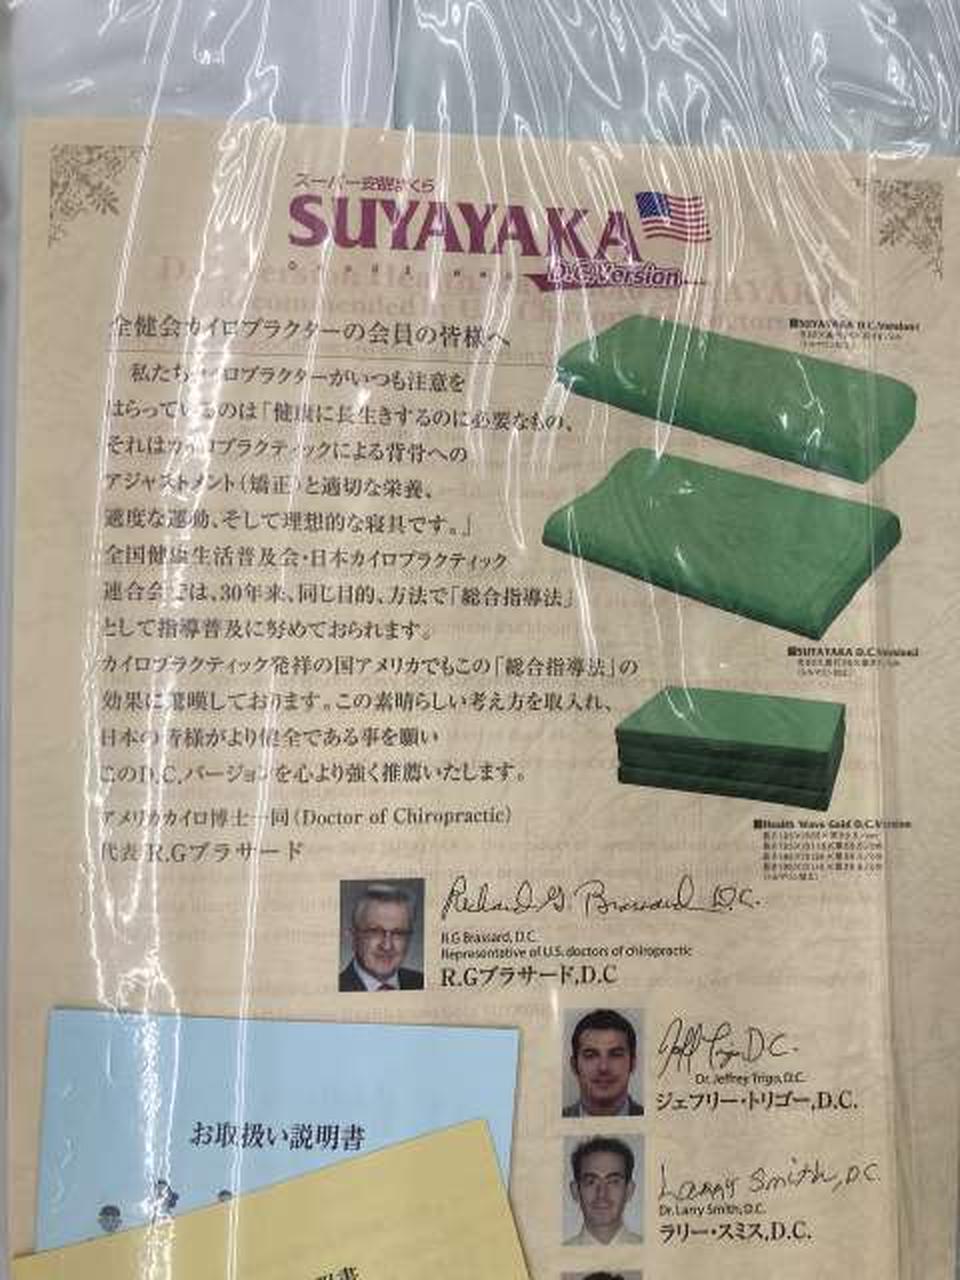 スーパー安眠まくら
SUYAYAKA
D.C.Version
全健会カイロプラクターの会員の皆様へ
私たちカイロプラクターがいつも注意を
はらっているのは「健康に長生きするのに必要なもの、
それはカイロプラクティックによる背骨への
アジャストメント(矯正)と適切な栄養、
適度な運動、そして理想的な寝具です。」
全国健康生活普及会・日本カイロプラクティック
連合会では、30年来、同じ目的、方法で「総合指導法」
として指導普及に努めておられます。
カイロプラクティック発祥の国アメリカでもこの「総合指導法」の
効果に驚嘆しております。この素晴らしい考え方を取入れ、
日本の皆様がより健全である事を願い
このD.C.バージョンを心より強く推薦いたします。
アメリカカイロ博士一同(Doctor of Chiropractic)
代表 R.Gブラサード
■SUYAYAKA D.C.Version1
■SUYAYAKA D.C.Version2
■Health Wave Gold D.C.Version
Richard G. Brassard D.C.
R.G Brassard, D.C.
Representative of U.S. doctors of chiropractic
R.Gブラサード,D.C
Dr. Jeffrey Trigo, D.C.
ジェフリー・トリゴー,D.C.
Larry Smith, D.C.
Dr. Larry Smith, D.C.
ラリー・スミス,D.C.
お取扱い説明書